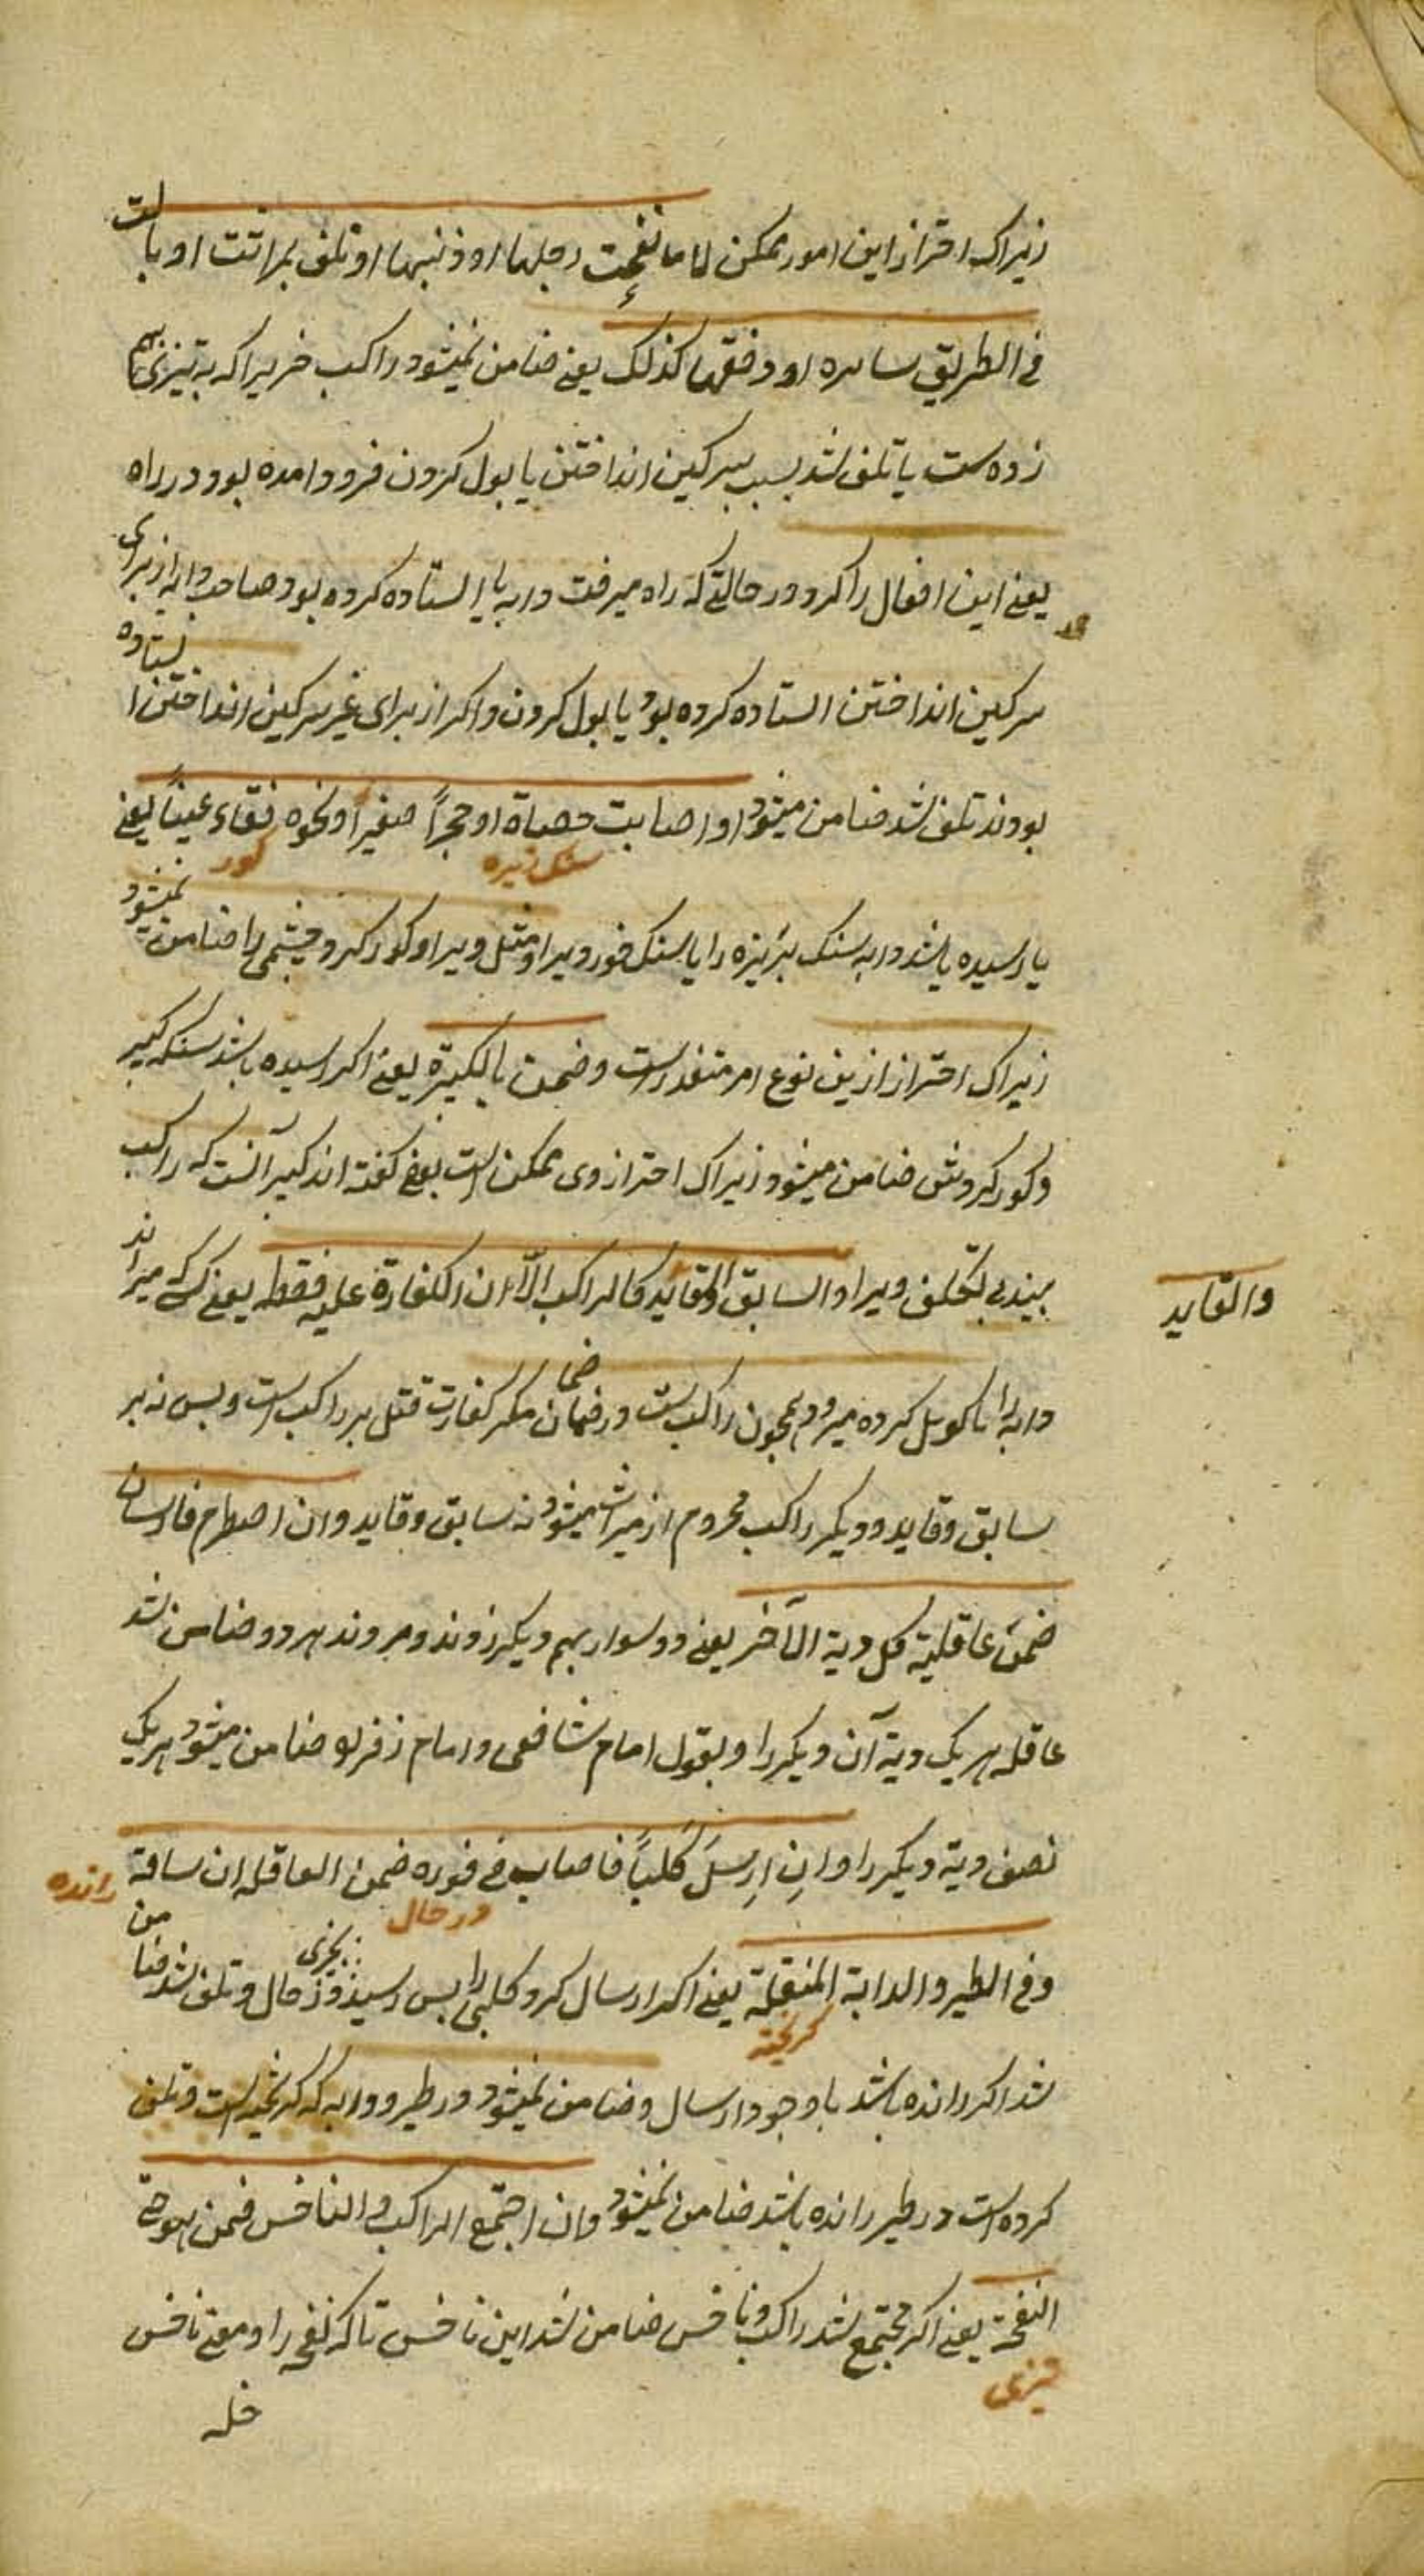 زیراک احتراز ازین امور ممکن لا ما نفحت رجلها او ذنبها او تلف بما راثت او بالت
فی الطریق سایره او وقفها کذلک یعنی ضامن نمیشود راکب خر یراکه به تیزی سم
زده ست یا تلف شد بسبب سرکین انداختن یا بول کردن فرود امده بود در راه
یعنی این افعال را کرد در حالتی که راه میرفت دابه یا ایستاده کرده بود صاحب دابه از برای
سرکین انداختن استاده کرده بود یا بول کردن و اکر از برای غیر سرکین انداختن ایستاده
بودند تلف شد ضامن میشود او اصابت حصاة او حجراً صغیراً او نحوه فقاء عیناً یعنی
سنک ریزه
کور
یا رسیده باشد دابه سنک بریزه را یا سنک خورد یرا و مثل ویرا و کور کرد چشمی را ضامن نمیشود
زیراک احتراز ازین نوع امر متعذر است و ضمن بالکبیرة یعنی اکر رسیده باشد سنک کبیر
و کور کردش ضامن میشود زیراک احتراز وی ممکن است بعضی کفته اند کبیر آنست که راکب
بیند بی تکلف ویرا و السابق او القاید کالراکب الا ان الکفارة علیه فقط یعنی کسی که میراند
والقاید
دابه را یا کوتل کرده میرود همچون راکب ست در ضمان مکر کفارت قتل بر راکب است و بس نه بر
سابق و قاید و دیکر راکب محروم از میراث میشود نه سابق و قاید و ان اصطدم فارسان
ضمن عاقلیة کل دیة الآخر یعنی دو سوار بهم دیکر زوند و مروند هر دو ضامن شد
عاقله هر یک دیة آن دیکر را و بقول امام شافعی و امام زفر له ضامن میشود هر یک
نصف دیة دیکر را و ان ارسل کلباً فاصاب فی فوره ضمن العاقله ان ساقه
در حال
رانده
و فی الطیر و الدابة المنفلتة یعنی اکر ارسال کرد کلبی را پس رسید بچیزی در حال و تلف شد ضامن
کریخته
شد اکر رانده باشد با وجود ارسال و ضامن نمیشود در طیر و دابه که کریخته است و تلف
کرده است در طیر رانده باشد ضامن نمیشود و ان اجتمع الراکب و الناخس ضمن هو حتی
النفحة یعنی اکر مجتمع شد راکب و ناخس ضامن شد این ناخس تا که نفحه را و معنی ناخس
تیزی
خله